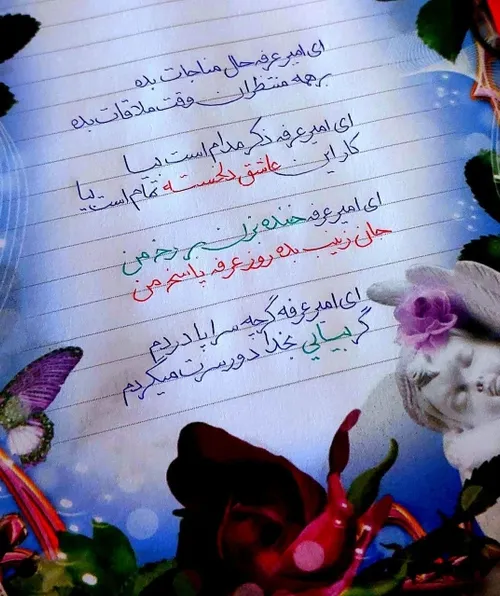 ای امیر عرفه حال مناجات بده
بر همه منتظران وقت ملاقات بده
ای امیر عرفه ذکر مدام است بیا
کار این عاشق دلخسته تمام است بیا
ای امیر عرفه خنده بزن بر رخ من
جان زینب بده روز عرفه پاسخ من
ای امیر عرفه گرچه سراپا دردم
گر بیایی بخدا دور سرت میگردم